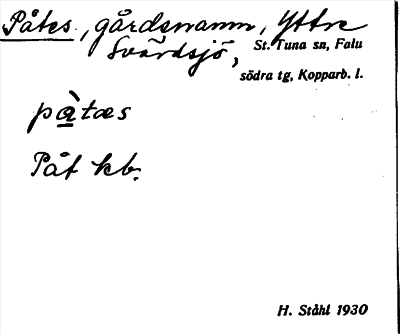 Påtes, gårdsnamn, Yttre
Svärdsjö, St. Tuna sn, Falu
södra tg, Kopparb. l.
pà̱tæs
Påt kb.
H. Ståhl 1930